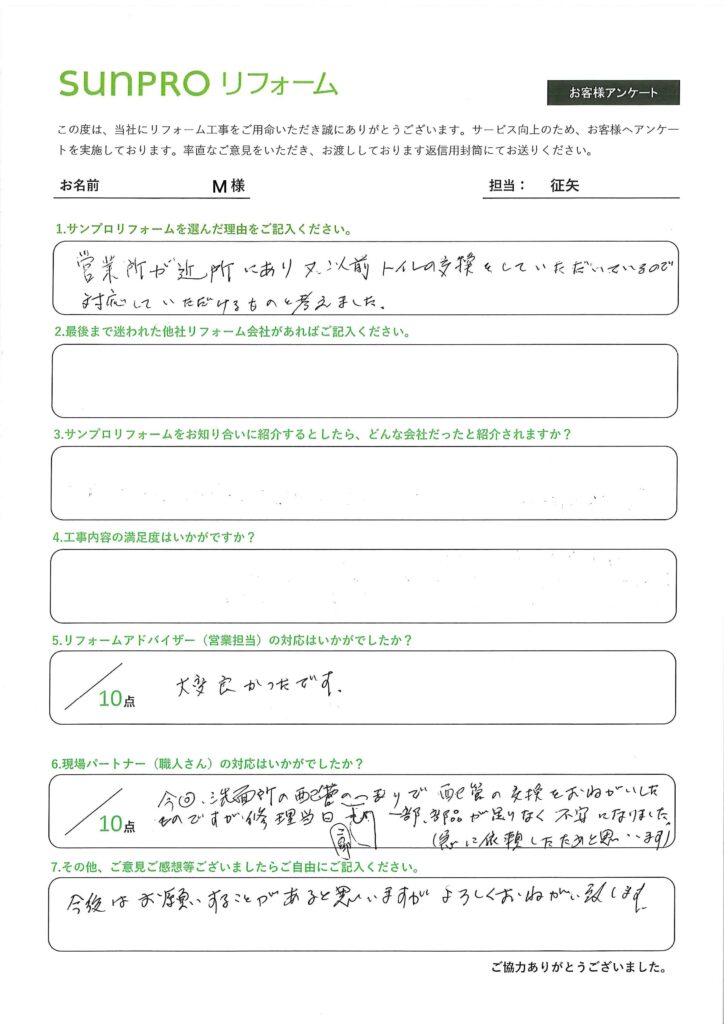 SUNPRO リフォーム
お客様アンケート
この度は、当社にリフォーム工事をご用命いただき誠にありがとうございます。サービス向上のため、お客様へアンケー
トを実施しております。率直なご意見をいただき、お渡ししております返信用封筒にてお送りください。
お名前 M 様 担当： 征矢
1.サンプロリフォームを選んだ理由をご記入ください。
営業所が近所にあり又、以前トイレの交換をしていただいているので
対応していただけるものと考えました。
2.最後まで迷われた他社リフォーム会社があればご記入ください。
3.サンプロリフォームをお知り合いに紹介するとしたら、どんな会社だったと紹介されますか？
4.工事内容の満足度はいかがですか？
5.リフォームアドバイザー（営業担当）の対応はいかがでしたか？
／10点 大変良かったです。
6.現場パートナー（職人さん）の対応はいかがでしたか？
今回、洗面所の配管のつまりで配管の交換をおねがいした
／10点 ものですが修理当日 一部、部品が足りなく不安になりました。
(急に依頼したためと思います)
7.その他、ご意見ご感想等ございましたらご自由にご記入ください。
今後はお願いすることがあると思いますがよろしくおねがい致します
ご協力ありがとうございました。